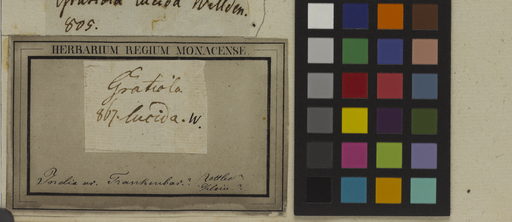 Gratiola lucida Willden.
805.
HERBARIUM REGIUM MONACENSE.
Gratiola
867. lucida. W.
India or. Frankenbar.
Rottler
Klein